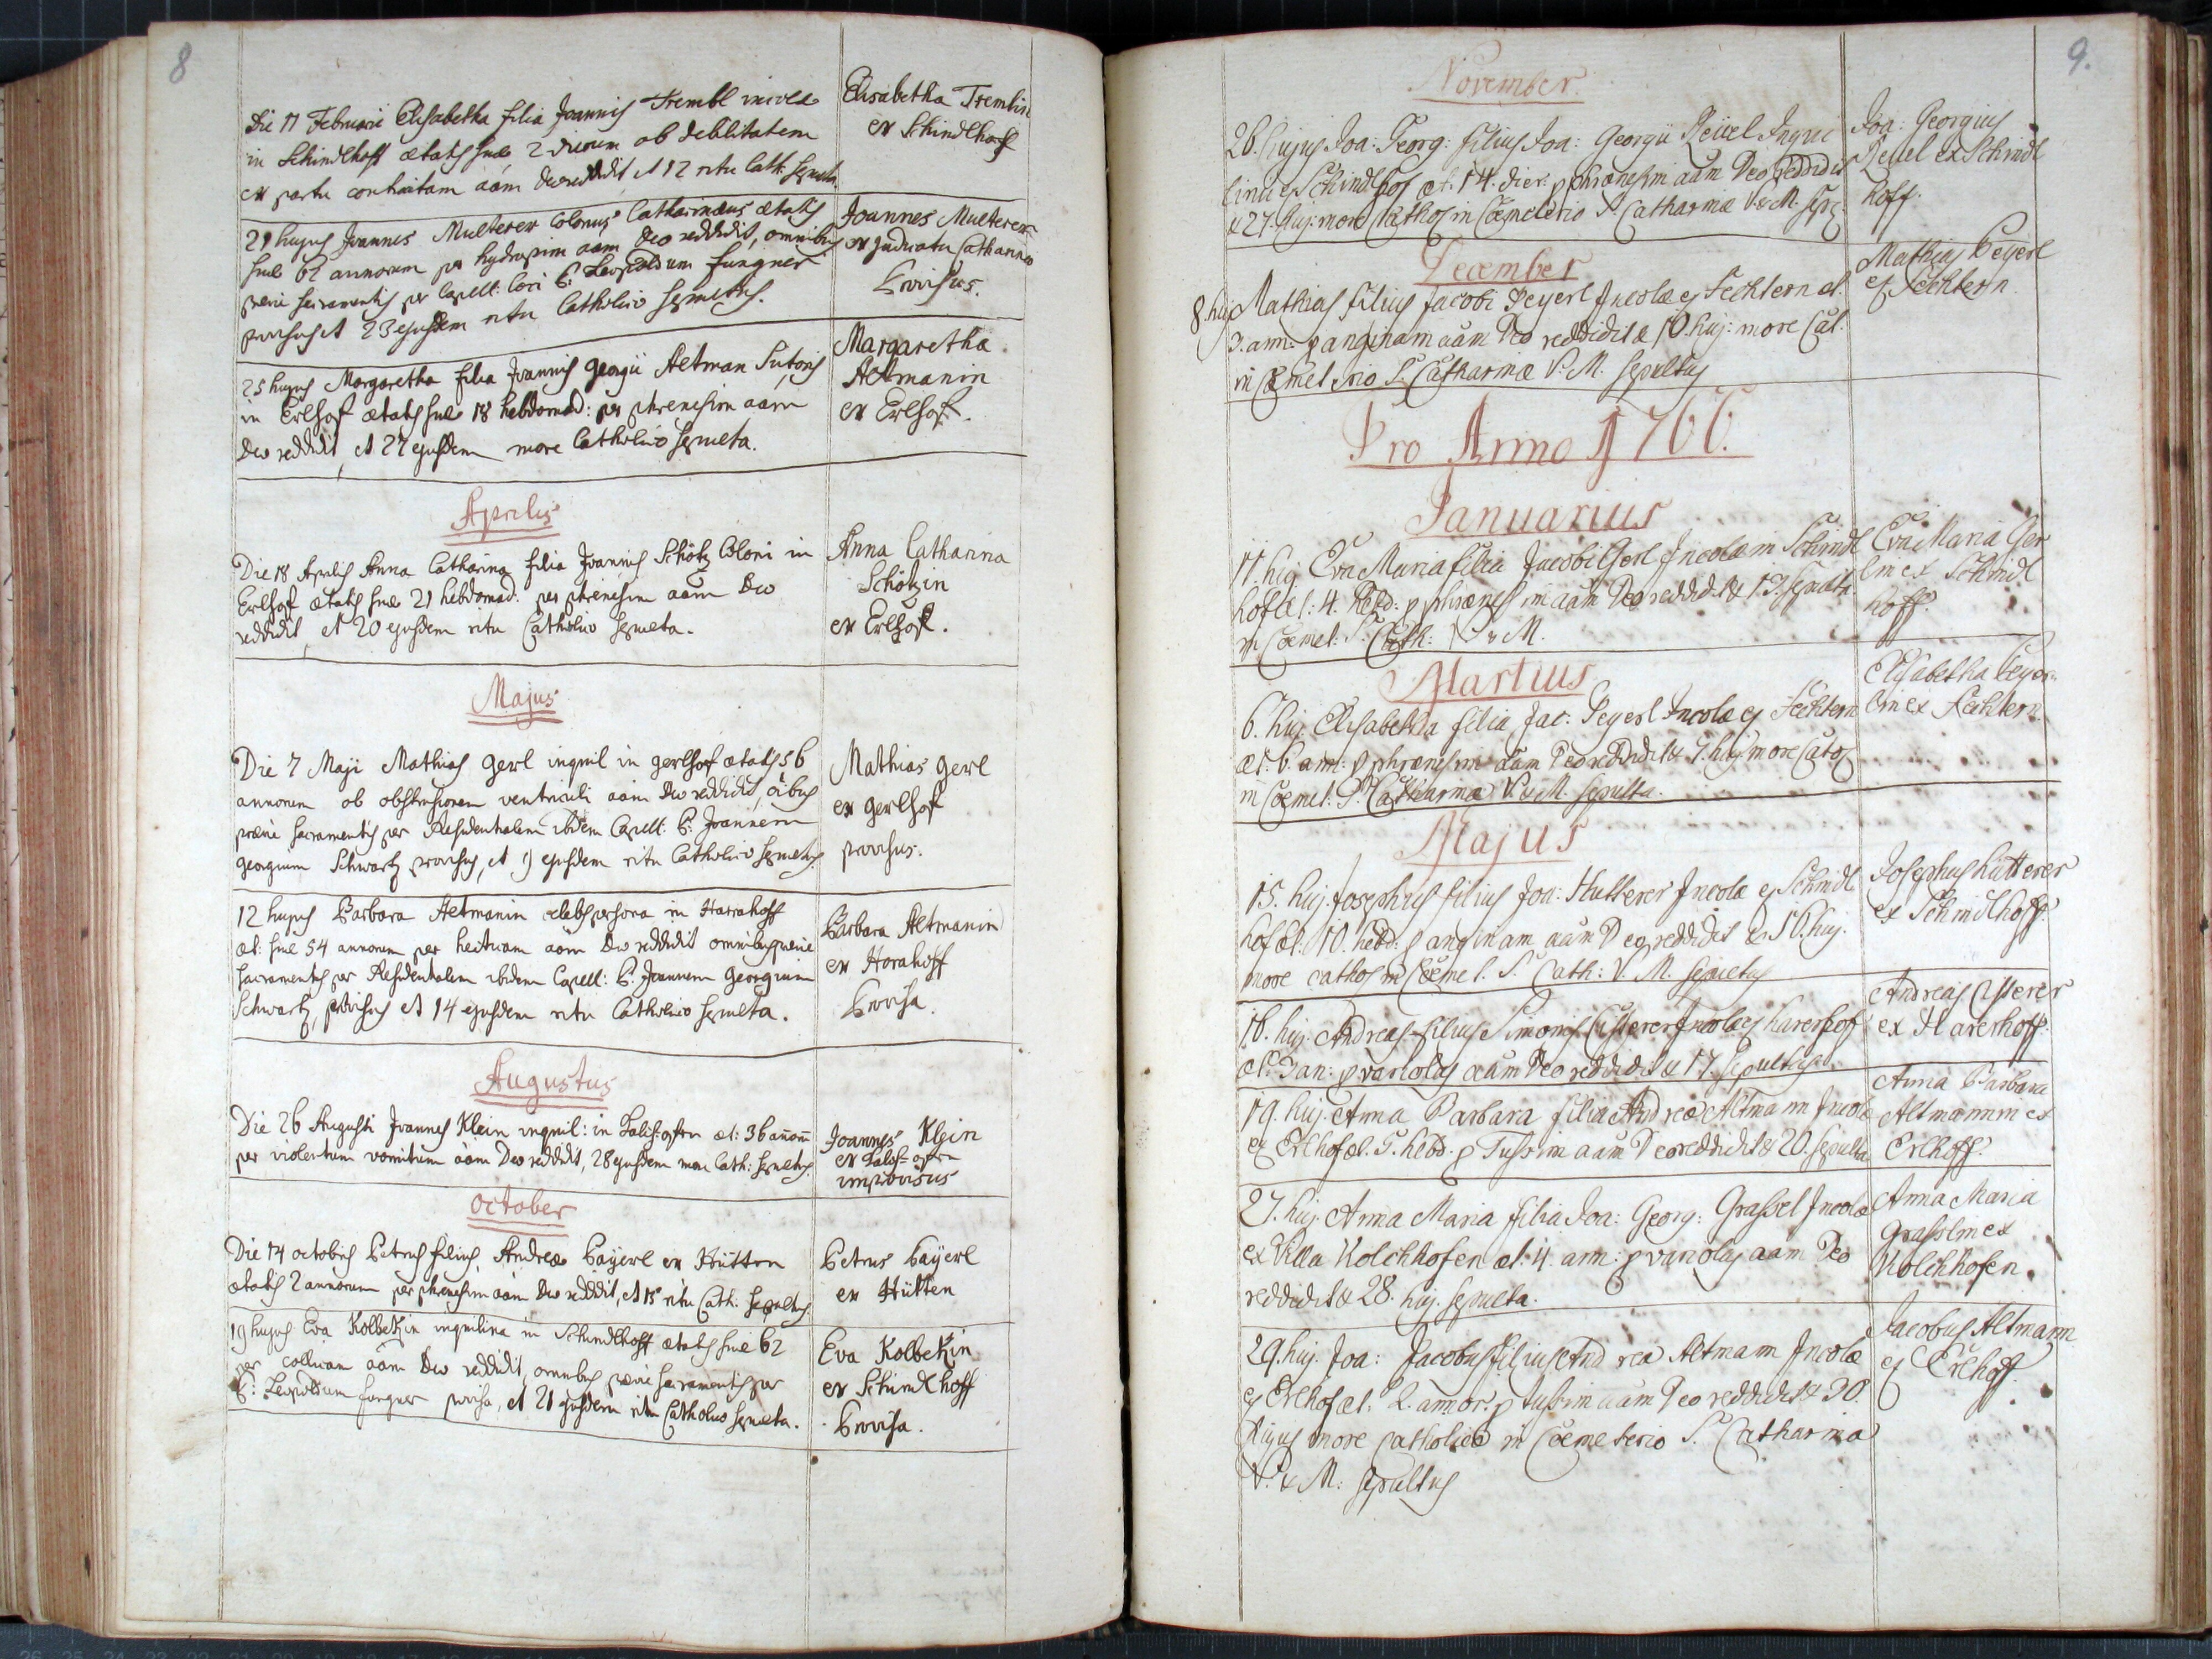 8
Die 11 Februarii Elisabetha filia Joannis Trembl incolæ
in Schindlhoff ætatis suæ 2 dierum ob debilitatem
ex partu contractam aãm Deo reddidit, et 12 ritu Cath: sepulta.
Elisabetha Tremlin
ex Schindlhoff
21 hujus Joannes Multerer Colonus Catharinæus ætatis
suæ 62 annorum per hydropim aam Deo reddidit, omnibus
prævie sacramentis per Capell: P: Leopoldum Fungner
provisus et 23 ejusdem ritu Catholico sepultus.
Joannes Multerer
ex Catharina
Provisus.
25 hujus Margaretha filia Joannis Georgii Altman Sutoris
in Erlhof ætatis suæ 18 hebdomad: per phrenesim aam
Deo reddidit, et 27 ejusdem more Catholico sepulta.
Margaretha
Altmanin
ex Erlhoff.
Aprilis
Die 18 Aprilis Anna Catharina filia Joannis Schötz Coloni in
Erlhoff ætatis suæ 21 hebdomad: per phrenesim aam Deo
reddidit, et 20 ejusdem ritu Catholico sepulta.
Anna Catharina
Schötzin
ex Erlhoff.
Majus
Die 7 Maji Mathias Gerl inquil in gerlhoff ætatis 56
annorum ob obstrusionem ventriculi aam Deo reddidit, oibus
prævie sacramentis per Residentialem ibidem Capell: P: Joannem
Georgium Schwartz provisus, et 9 ejusdem ritu Catholico sepultus.
Mathias Gerl
ex Gerlhoff
provisus.
12 hujus Barbara Altmanin cælebs persona in Harrahoff
æt: suæ 54 annorum per hecticam aam Deo reddidit omnibus prævie
sacramentis per Residentialem ibidem Capell: P: Joannem Georgium
Schwartz, provisus et 14 ejusdem ritu Catholico sepulta.
Barbara Altmanin
ex Horahoff
Provisa.
Augustus
Die 26 Augusti Joannes Klein inquil: in æt: 36 anōm
per violentum vomitum aam Deo reddidit, 28 ejusdem more Cath: sepultus.
Joannes Klein
ex
improvisus
October
Die 14 octobris Petrus filius Andreæ Payerl ex Hütten
ætatis 2 annorum per phrenesim aam Deo reddidit, et 15 ritu Cath: sepultus.
Petrus Paÿerl
ex Hütten
19 hujus Eva Kolbekin inquilina in Schindlhoff ætatis suæ 62
per collicam aam Deo reddidit, omnibus prævie sacramentis per
P: Leopoldum Fungner provisa, et 21 ejusdem ritu Catholico sepulta.
Eva Kolbekin
ex Schindlhoff
Provisa.
9.
November.
26. hujus Joa: Georg: filius Joa: Georgii Reüel Inqui
lini ex Schindlhof æt: 14. dier: p phrænesim aam Deo reddidit
& 27. huj: more Cathos in Cœmeterio S. Catharinæ V. & M. sep:
Joa: Georgius
Reüel ex Schindl
hoff.
December
8. huj Mathias filius Jacobi Peyerl Incolæ ex Fechtern æt.
3. ann: p anginam aam Deo reddidit & 10. huj: more Cat.
in Cœmeterio S. Catharinæ V. M. sepultus
Mathias Peyerl
ex Fechtern.
Pro Anno 1766.
Januarius
11. huj. Eva Maria filia Jacobi Gerl Incolæ in Schindl
hof æt: 4. hebd: p phrænesim aam Deo reddidit & 13. sepulta
in Cœmet: S. Cath: V. & M.
Eva Maria Ger
lin ex Schindl
hoff.
Martius
6. huj. Elisabetha filia Jac: Peyerl Incolæ ex Fechtern
æt: 6. ann: p phrænesim aam Deo reddidit & 7. huj more Catos
in Cœmet: S. Catharinæ V. & M. sepulta.
Elisabetha Peyer
lin ex Fechtern
Majus
15. huj. Josephus filius Joa: Hutterer Incolæ ex Schindl
hof æt: 10. hebd: p anginam aam Deo reddidit & 16. huj.
more cathos in Cœmet. S. Cath: V. M. sepultus
Josephus Hütterer
ex Schindlhoff.
16. huj. Andreas filius Simonis Cisterer Incolæ ex Harerhof
æt: 3 an: p variolas aam Deo reddidit & 17. sepultus
Andreas Cisterer
ex Harerhoff.
19. huj. Anna Barbara filia Andreæ Altman Incolæ
ex Erlhof æt. 5. hebd. p Tussim aam Deo reddidit & 20. sepulta
Anna Barbara
Altmannin ex
Erlhoff.
27. huj. Anna Maria filia Joa: Georg: Grassel Incolæ
ex Villa Kolchhofen æt: 4. ann: p variolas aam Deo
reddidit & 28. huj. sepulta.
Anna Maria
Grasslin ex
Kolchhofen.
29. huj. Joa: Jacobus filius Andreæ Altmann Incolæ
ex Erlhof æt: 2. annor: p tussim aam Deo reddidit & 30.
hujus more catholico in Cœmeterio S. Catharinæ
V. & M: sepultus
Jacobus Altmann
ex Erlhoff.